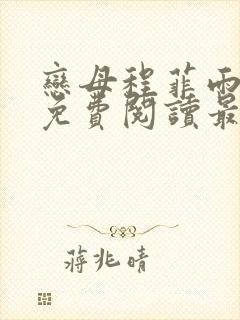 戀母程菲雨
免費閱讀最
蔣兆晴